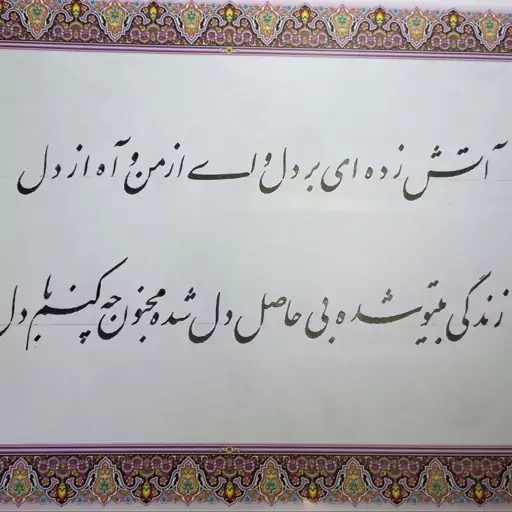 آتش زده ای بر دل و اے از من و آه از دل
زندگی بیتو شده بی حاصل دل شده مجنون چه کنم با دل